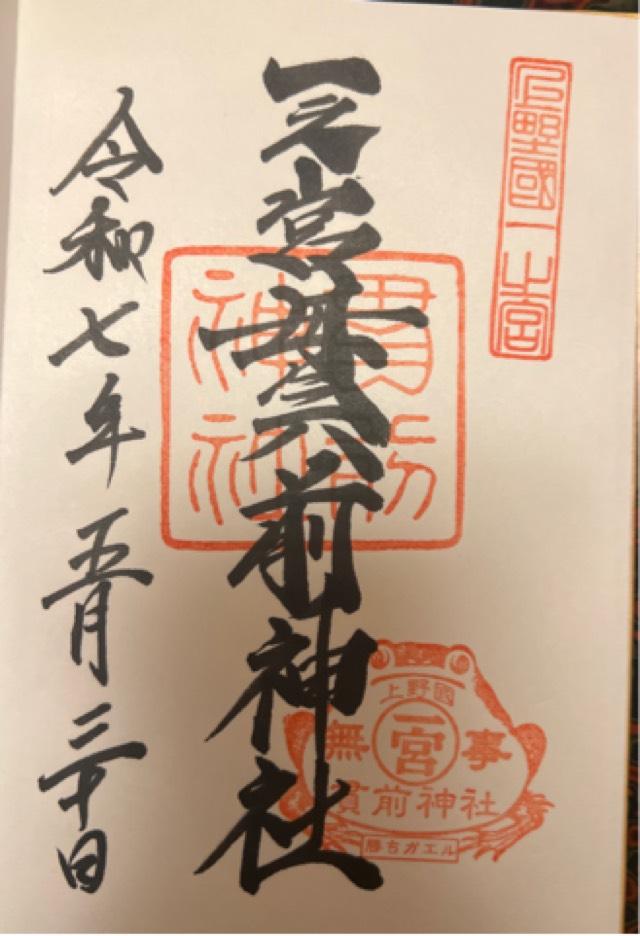 上野國一之宮
一之宮貫前神社
貫前
神社
令和七年五月三十日
上野國
無 一宮 事
貫前神社
勝ちガエル